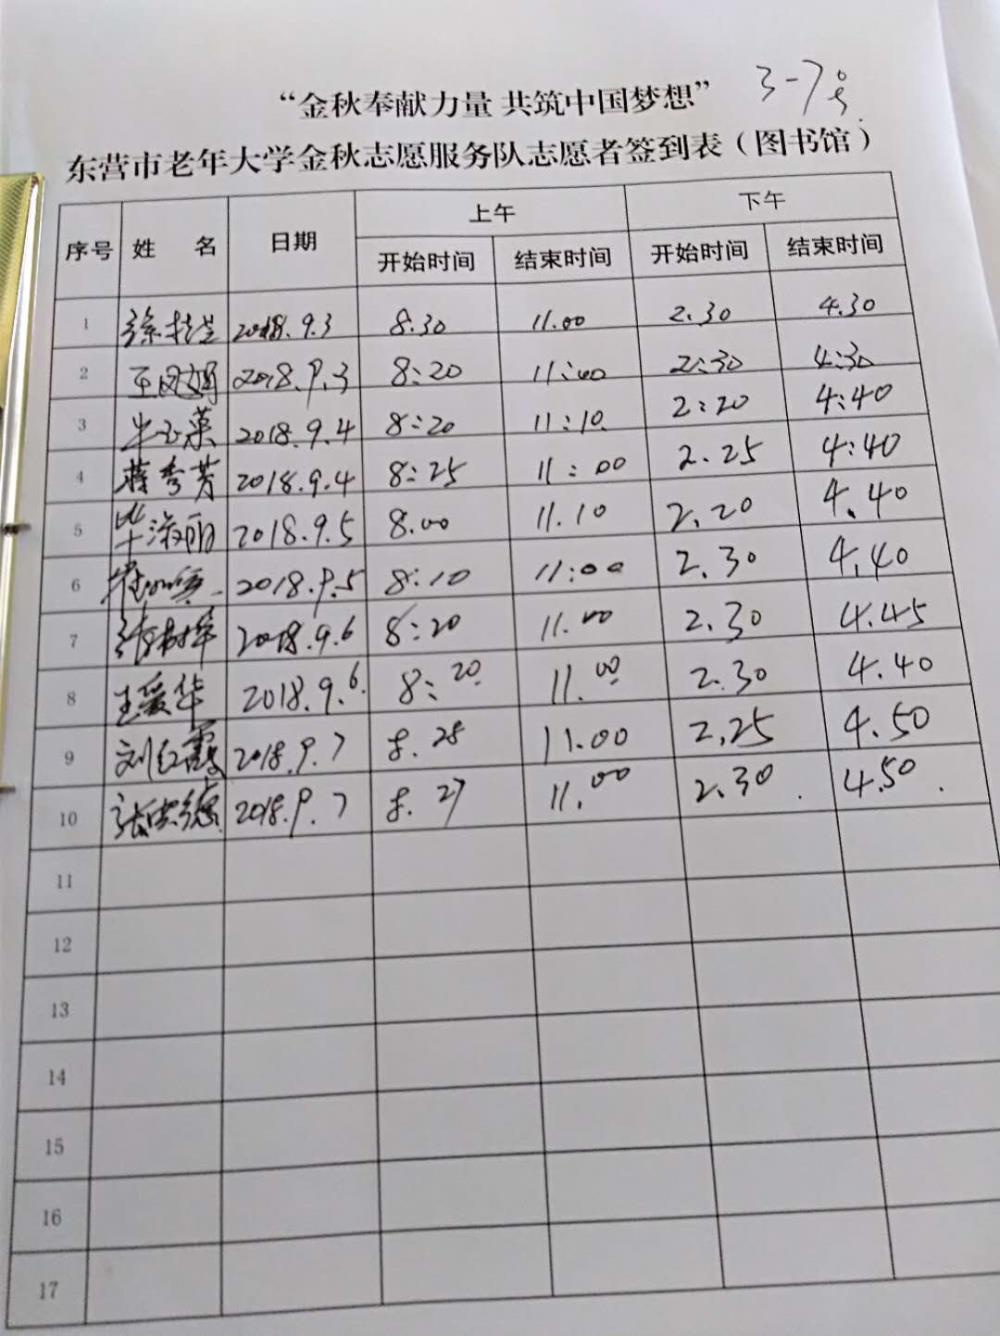 “金秋奉献力量 共筑中国梦想” 3-7号
东营市老年大学金秋志愿服务队志愿者签到表（图书馆）
序号 姓 名 日期 上午 下午
开始时间 结束时间 开始时间 结束时间
1 徐桂兰 2018.9.3 8.30 11.00 2.30 4.30
2 王凤娟 2018.9.3 8:20 11:00 2:30 4:30
3 2018.9.4 8:20 11:10 2:20 4:40
4 蒋秀芳 2018.9.4 8:25 11:00 2.25 4:40
5 毕淑丽 2018.9.5 8.00 11.10 2.20 4.40
6 2018.9.5 8:10 11:00 2.30 4.40
7 2018.9.6 8:20 11.00 2.30 4.45
8 王爱华 2018.9.6. 8:20 11.00 2.30 4.40
9 刘红霞 2018.9.7 8.28 11.00 2.25 4.50
10 2018.9.7 8.27 11.00 2.30. 4.50.
11
12
13
14
15
16
17